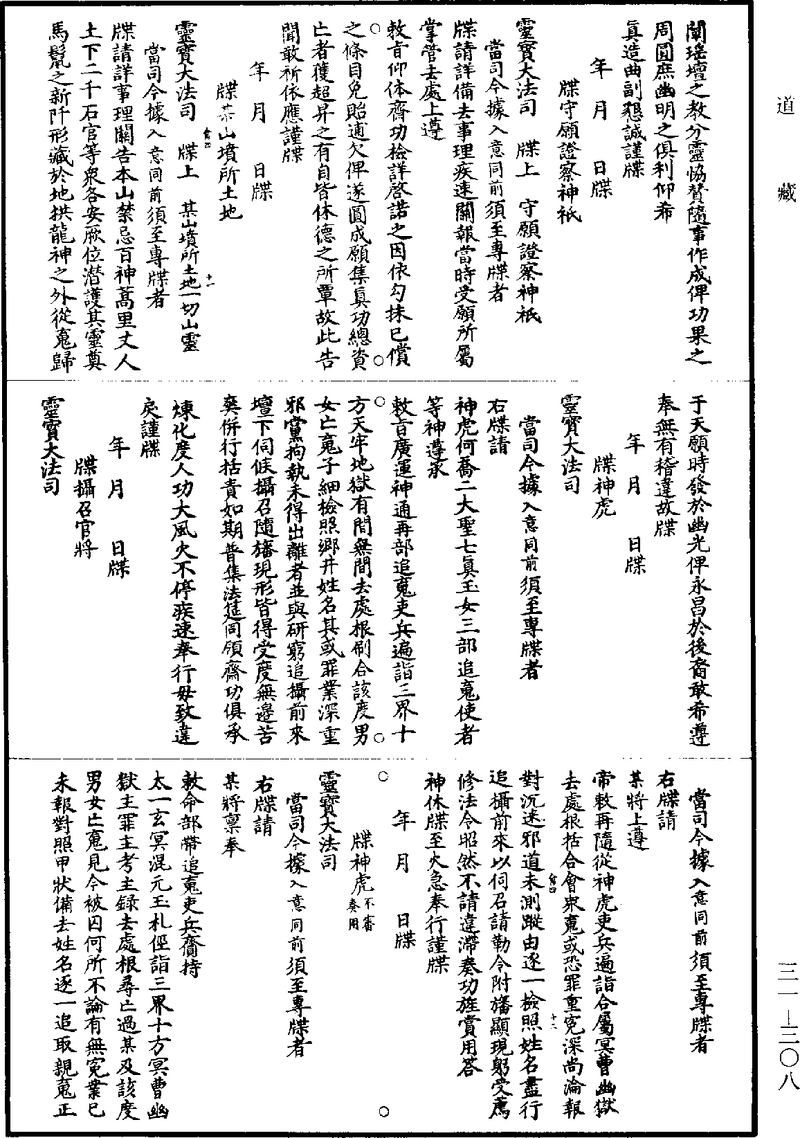 道藏
闡瑤壇之教分靈協贊隨事作成俾功果之
周圓庶幽明之俱利仰希
眞造曲副懇誠謹牒
年　月　日牒
牒守願證察神祇
靈寶大法司　牒上　守願證察神祇
當司今據入意同前須至專牒者
牒請詳備去事理疾速關報當時受願所屬
掌管去處上遵
敕旨仰体齋功檢詳啓諾之因依勾抹已償
之條目免貽逋欠俾遂圓成願集眞功總資
亡者獲超昇之有自皆休德之所覃故此告
聞敢祈依應謹牒
年　月　日牒
牒某山墳所土地
靈寶大法司　牒上　某山墳所土地一切山靈
當司今據入意同前須至專牒者
牒請詳事理關告本山禁忌百神蒿里丈人
土下二千石官等衆各安厥位潛護其靈奠
馬鬛之新阡形藏於地拱龍神之外從䰟歸
于天願時發於幽光俾永昌於後裔敢希遵
奉無有稽違故牒
年　月　日牒
牒神虎
靈寶大法司
當司今據入意同前須至專牒者
右牒請
神虎何喬二大聖七眞玉女三部追䰟使者
等神遵承
敕旨廣運神通再部追䰟吏兵遍詣三界十
方天牢地獄有間無間去處根刷合該度男
女亡䰟子細檢照鄉井姓名其或罪業深重
邪黨拘執未得出離者並與研窮追攝前來
壇下伺候攝召隨旛現形皆得受度無邊苦
奭併行括責如期普集法筵同領齋功俱承
煉化度人功大風火不停疾速奉行毋致違
戾謹牒
年　月　日牒
牒攝召官將
靈寶大法司
當司今據入意同前須至專牒者
右牒請
某將上遵
帝敕再隨從神虎吏兵遍詣合屬冥曹幽獄
去處根括合會衆䰟或恐罪重寃深尚淪報
對沉迷邪道未測蹤由逐一檢照姓名盡行
追攝前來以伺召請勒令附旛顯現躬受薦
修法令昭然不請違滯奏功旌賞用答
神休牒至火急奉行謹牒
年　月　日牒
牒神虎不審奏用
靈寶大法司
當司今據入意同前須至專牒者
右牒請
某將稟奉
敕命部帶追䰟吏兵齎持
太一玄冥混元玉札徑詣三界十方冥曹幽
獄主罪主考主錄去處根尋亡過某及該度
男女亡䰟見今被囚何所不論有無寃業已
未報對照甲狀備去姓名逐一追取親䰟正
三一—三〇八